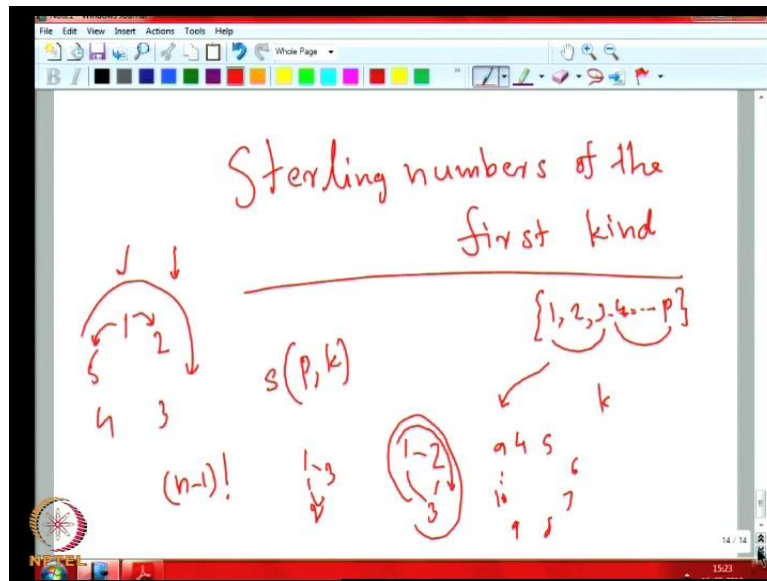 File Edit View Insert Actions Tools Help
Whole Page
Sterling numbers of the
first kind
{1, 2, 3, 4, ... P}
1
5 2
4 3
s(P, k)
k
(n-1)!
1-3
1-2
3
9 4 5
6
10 7
9 8
NPTEL
14 / 14
15:23